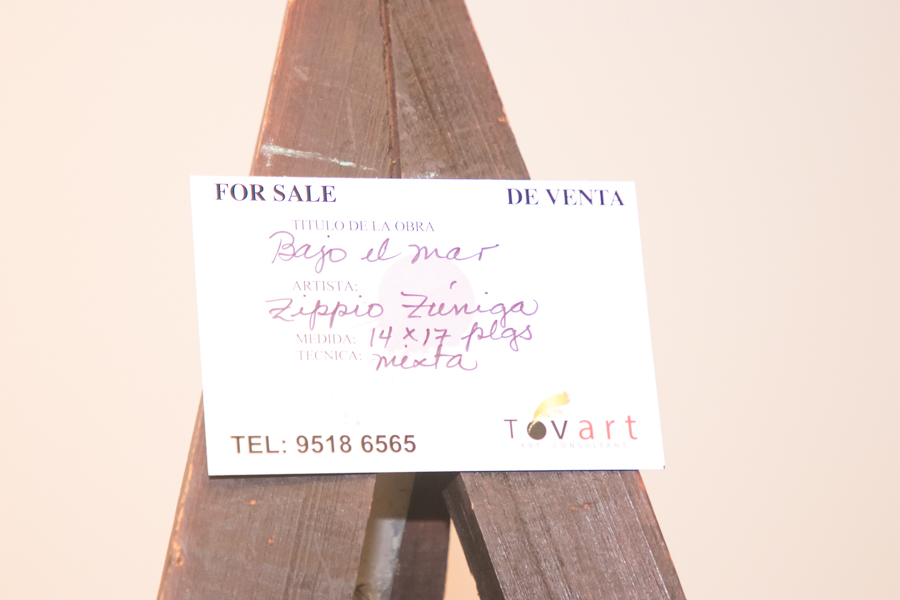 FOR SALE DE VENTA
TITULO DE LA OBRA
Bajo el mar
ARTISTA:
Zippio Zúniga
MEDIDA: 14 x 17 plgs
TECNICA: mixta
TEL: 9518 6565
Tovart
ART CONSULTANT